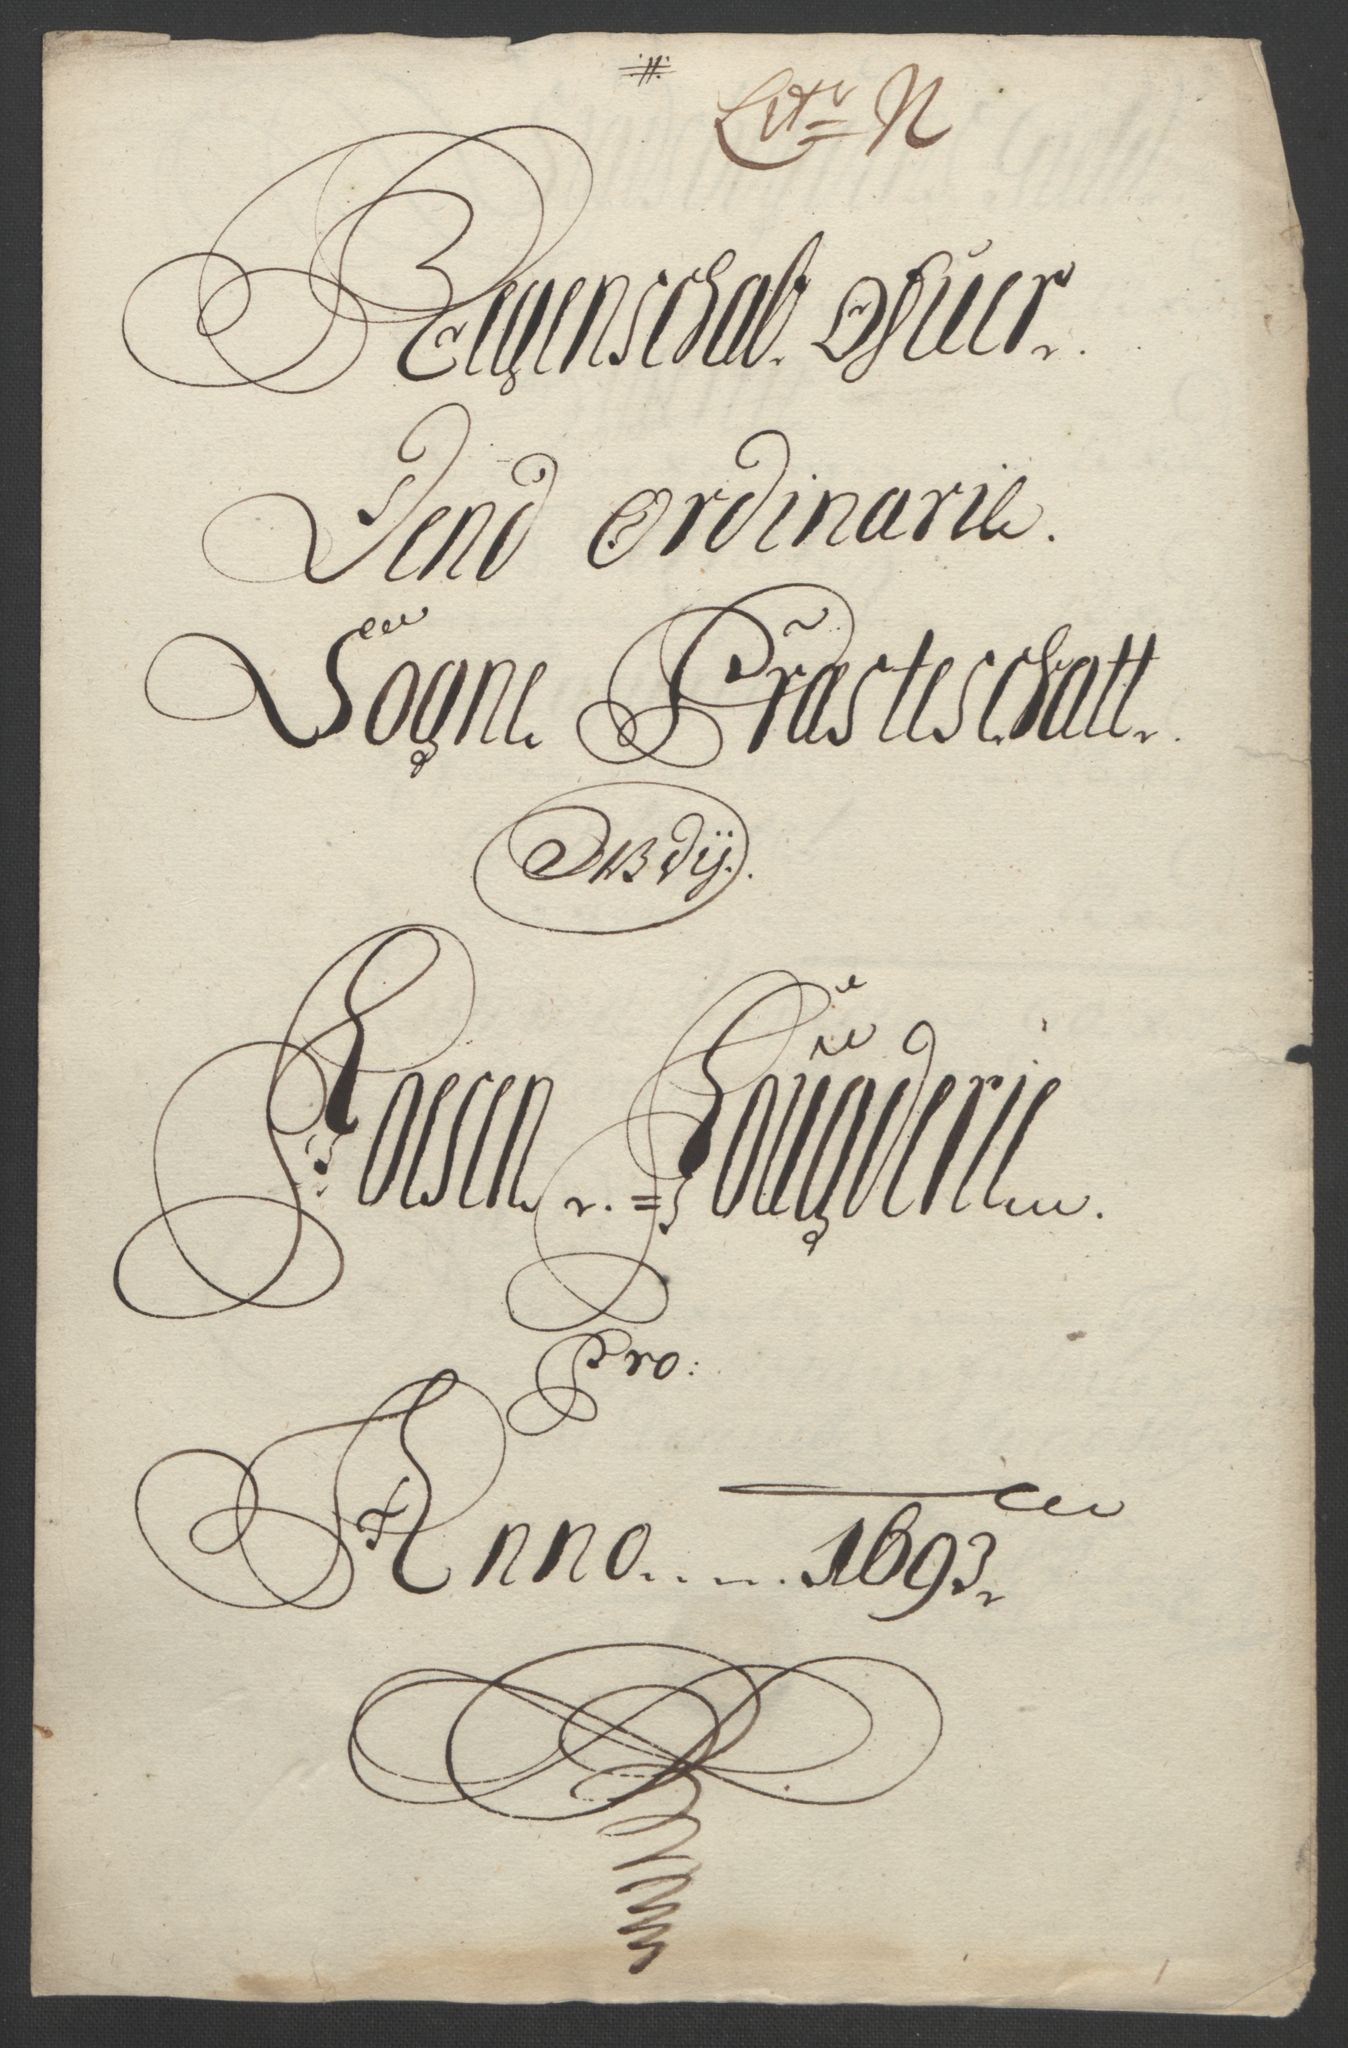 Litr N
Regenschab Ofuer
Dend Ordinarie
Sogne Præsteschatt
Udj
Foesen Fougderie
Pro:
Anno 1693